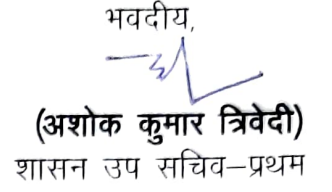 भवदीय,
(अशोक कुमार त्रिवेदी)
शासन उप सचिव–प्रथम